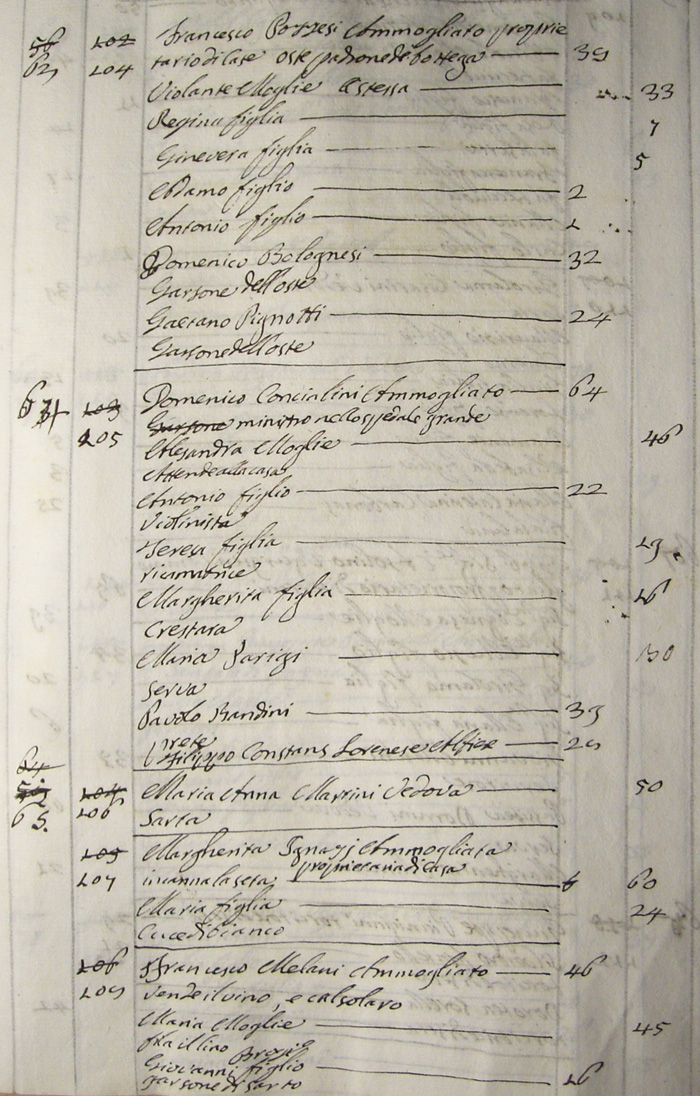 56 102 Francesco Pozzesi Ammogliato proprie
62 104 tario di case oste padrone de bottega 39
Violante Moglie Ostessa 33
Regina figlia 7
Ginevera figlia 5
Adamo figlio 2
Antonio figlio 1
Domenico Bolognesi 32
Garsone dell'oste
Gaetano Pignotti 24
Garsone dell'oste
63 103 Domenico Concialini Ammogliato 64
105 Garsone ministro nello spedale grande
Alesandra Moglie 46
Attende alla casa
Antonio figlio 22
Violinista
Teresa figlia 19
ricamatrice
Margherita figlia 16
Crestara
Maria Parigi 30
Serva
Paolo Bandini 33
prete
64 Filippo Constans Lorenese Alfiere
104 Maria Anna Martini Vedova 50
65 106 Sarta
105 Margherita Ignazj Ammogliata
proprietaria di Casa
107 incanna la seta 60
Maria figlia 24
Cuce di bianco
106 Francesco Melani Ammogliato 46
vende il vino, e calsolaro
Maria Moglie 45
fra il lino
Giovanni figlio 16
garsone di sarto